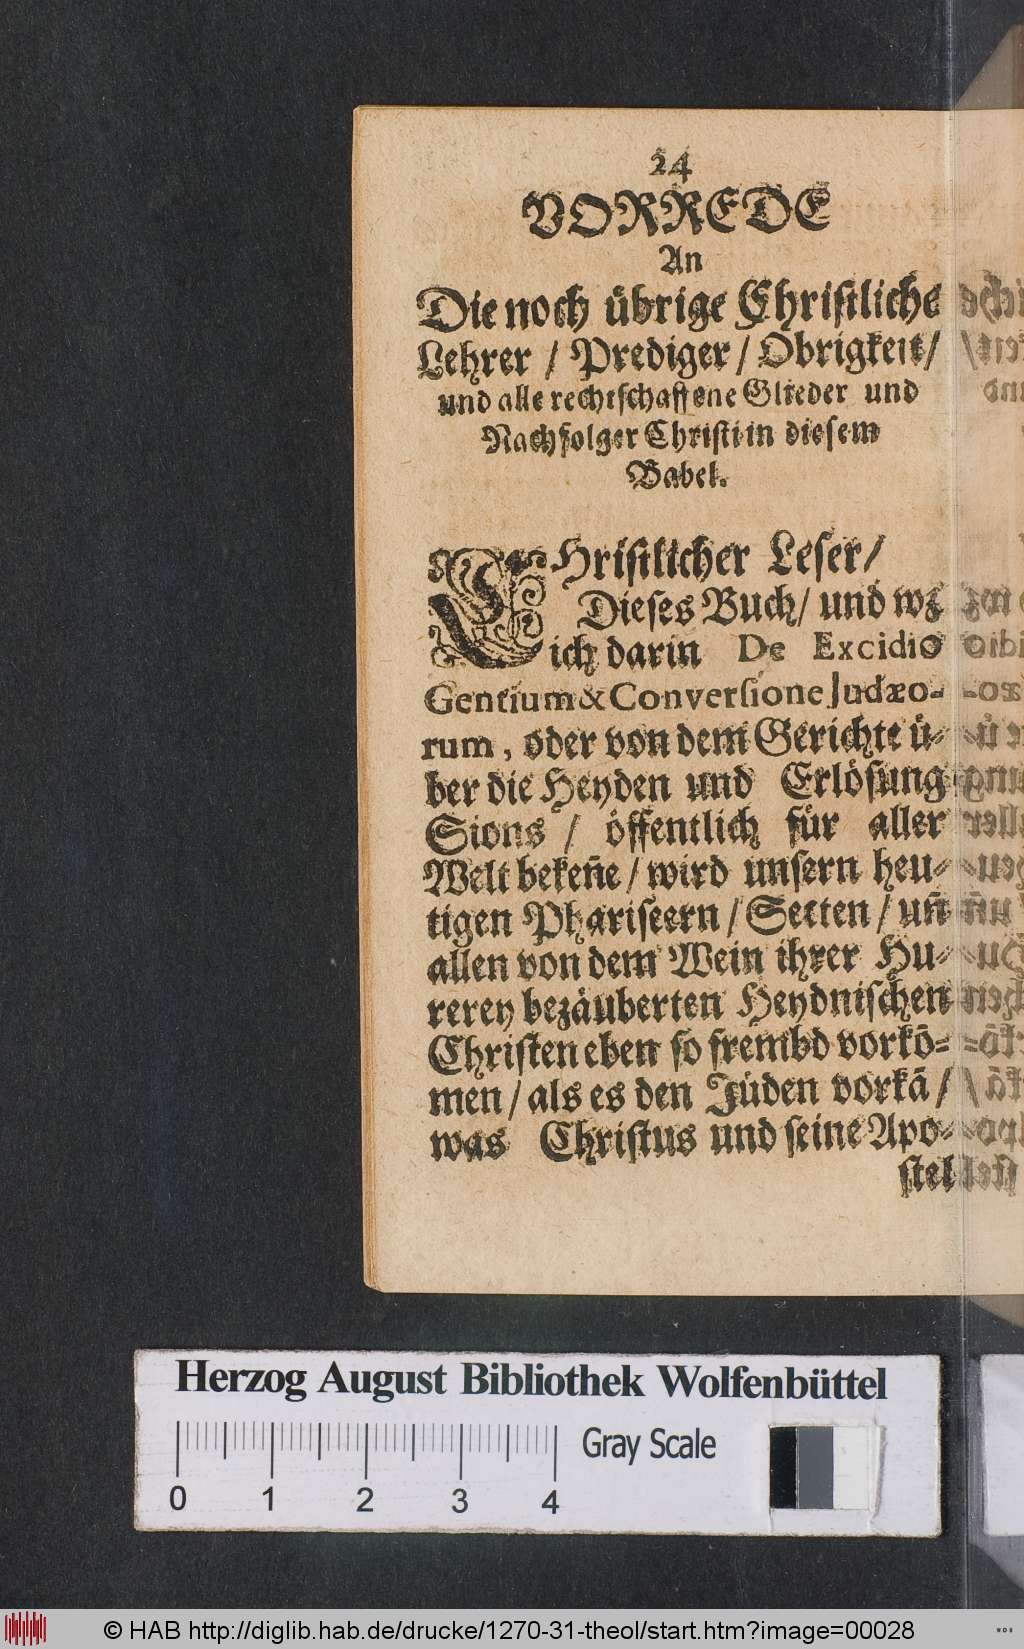 24
VORREDE
An
Die noch übrige Christliche
Lehrer / Prediger / Obrigkeit /
und alle rechtschaffene Glieder und
Nachfolger Christi in diesem
Babel.
CHristlicher Leser /
Dieses Buch / und wz
ich darin De Excidio
Gentium & Conversione Judæo-
rum, oder von dem Gerichte ü-
ber die Heyden und Erlösung
Sions / öffentlich für aller
Welt bekeñe / wird unsern heu-
tigen Phariseern / Secten / uñ
allen von dem Wein ihrer Hu-
rerey bezäuberten Heydnischen
Christen eben so frembd vorkō-
men / als es den Jüden vorkā /
was Christus und seine Apo-
stel
Herzog August Bibliothek Wolfenbüttel
0 1 2 3 4 Gray Scale
© HAB http://diglib.hab.de/drucke/1270-31-theol/start.htm?image=00028